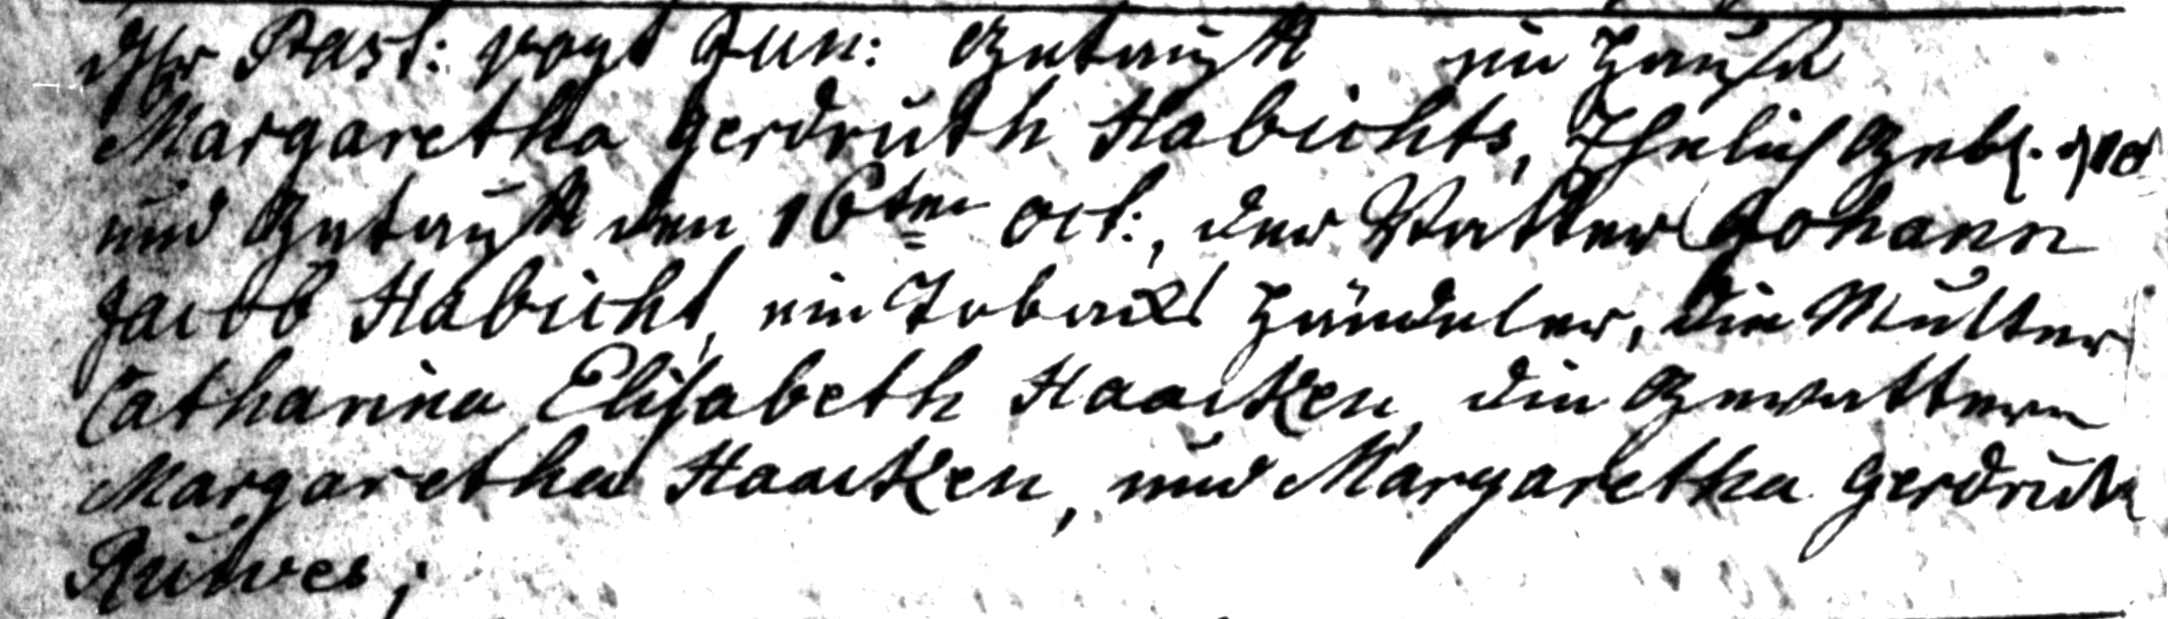 Hr Past: Vogt Jun: Getaufft im Hause
Margaretha Gerdruth Habichts, Ehelich Gebh. d 10
und Getaufft den 16ten Oct:, der Vatter Johann
Jacob Habicht, ein Tobacks Händeler, die Mutter
Catharina Elisabeth Haacken, die Gevattern
Margaretha Haacken, und Margaretha Gerdruth
Ruwes;